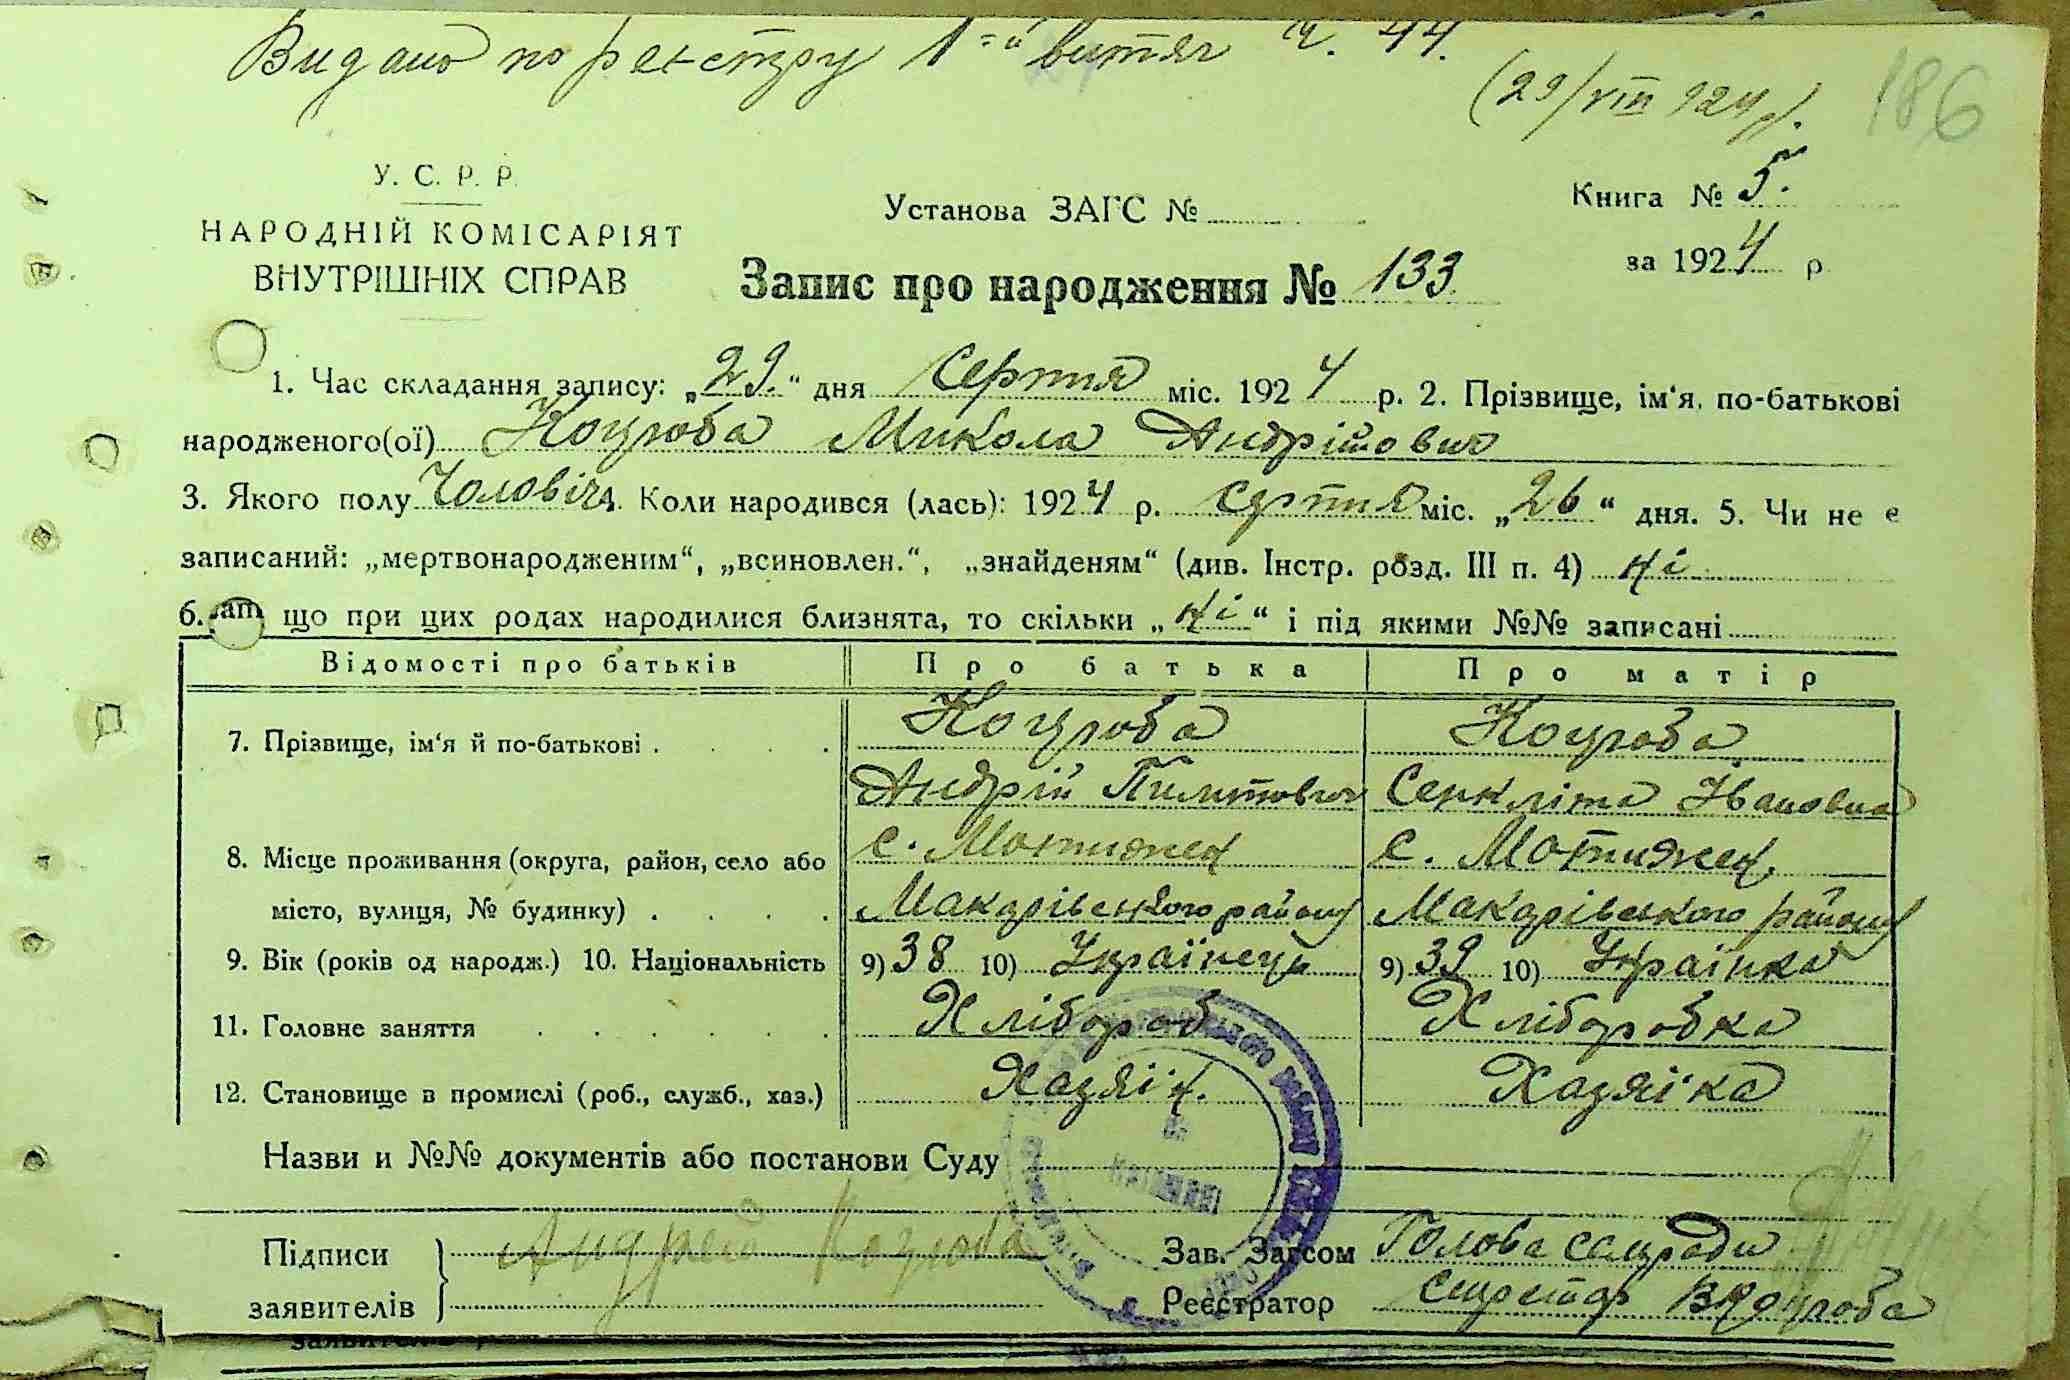 Видано по реєстру 1=й витяг ч. 44.
(29/VIII 924 р).
186
У. С. Р. Р.
НАРОДНІЙ КОМІСАРІЯТ
ВНУТРІШНІХ СПРАВ
Установа ЗАГС №
Книга № 5.
за 1924 р
Запис про народження № 133
1. Час складання запису: „29.“ дня Серпня міс. 1924 р. 2. Прізвище, ім'я, по-батькові
народженого(ої) Коцюба Микола Андрійович
3. Якого полу Чоловіч. 4. Коли народився (лась): 1924 р. серпня міс. „26“ дня. 5. Чи не є
записаний: „мертвонародженим“, „всиновлен.“, „знайденям“ (див. Інстр. розд. III п. 4) Ні
6. що при цих родах народилися близнята, то скільки „Ні“ і під якими №№ записані
Відомості про батьків Про батька Про матір
7. Прізвище, ім'я й по-батькові . . . . Коцюба Коцюба
Андрій Пилипович Івановна
8. Місце проживання (округа, район, село або с. Мотижен с. Мотижен
місто, вулиця, № будинку) . . . . Макарівського району Макарівського району
9. Вік (років од народж.) 10. Національність 9) 38 10) Українець 9) 39 10) Українка
11. Головне заняття . . . . . Хлібороб Хліборобка
12. Становище в промислі (роб., служб., хаз.) Хазяїн. Хазяїка
Назви и №№ документів або постанови Суду
Підписи
заявителів
Андрей Коцюба
Зав. Загсом Голова сельради
Реєстратор Секретар ВКоцюба